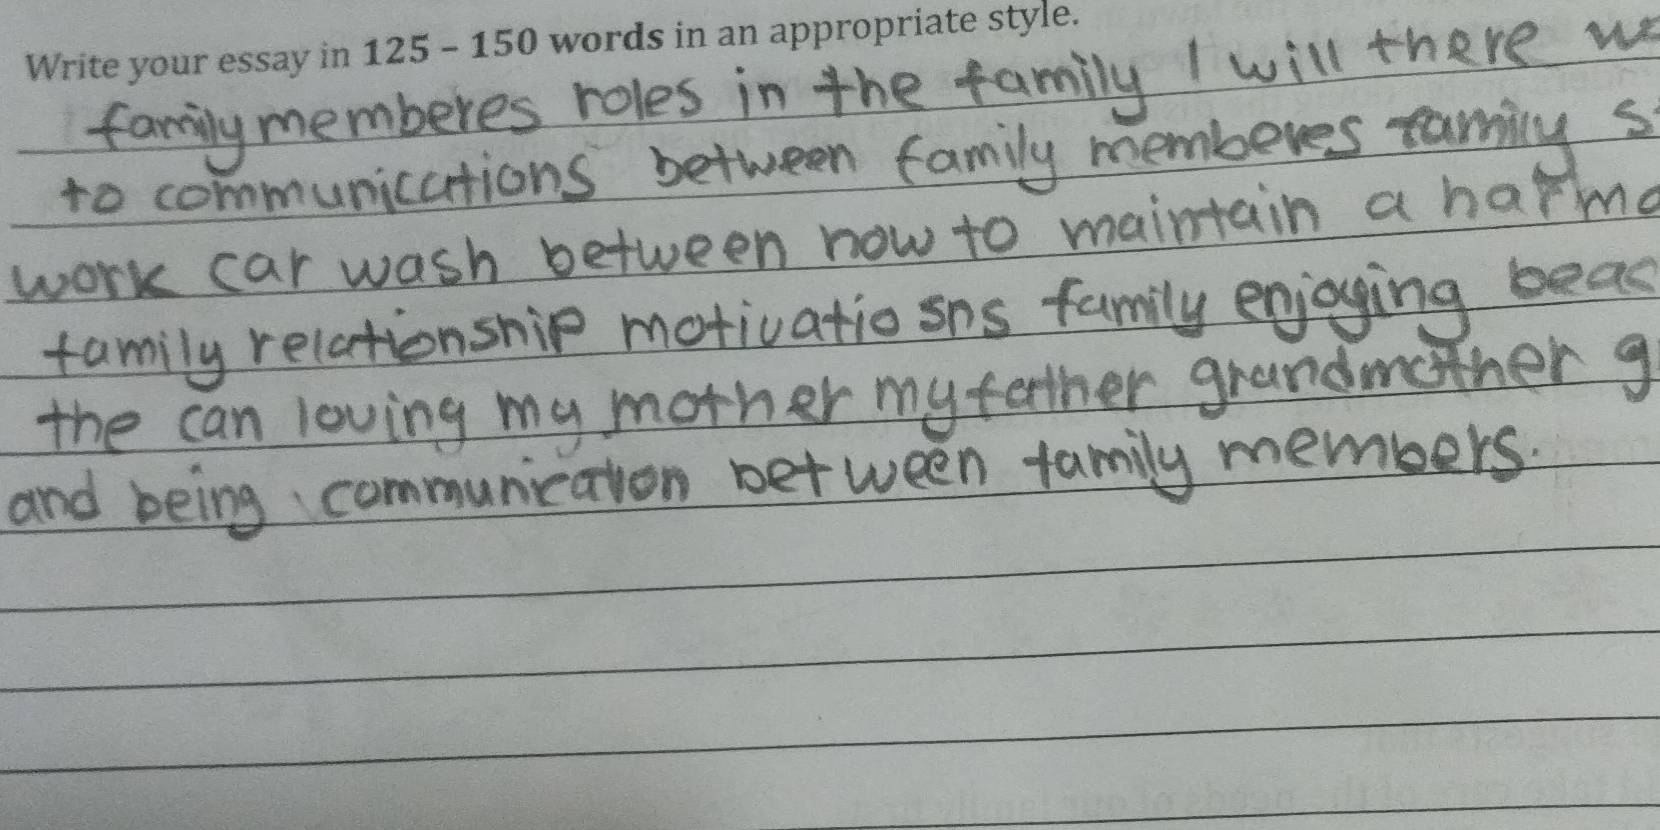 Write your essay in 125 – 150 words in an appropriate style.
family memberes roles in the family I will there
to communications between family memberes family
work car wash between how to maintain a
family relationship motivatio sns family enjoying
the can loving my mother my father grandmother
and being communication between family members.